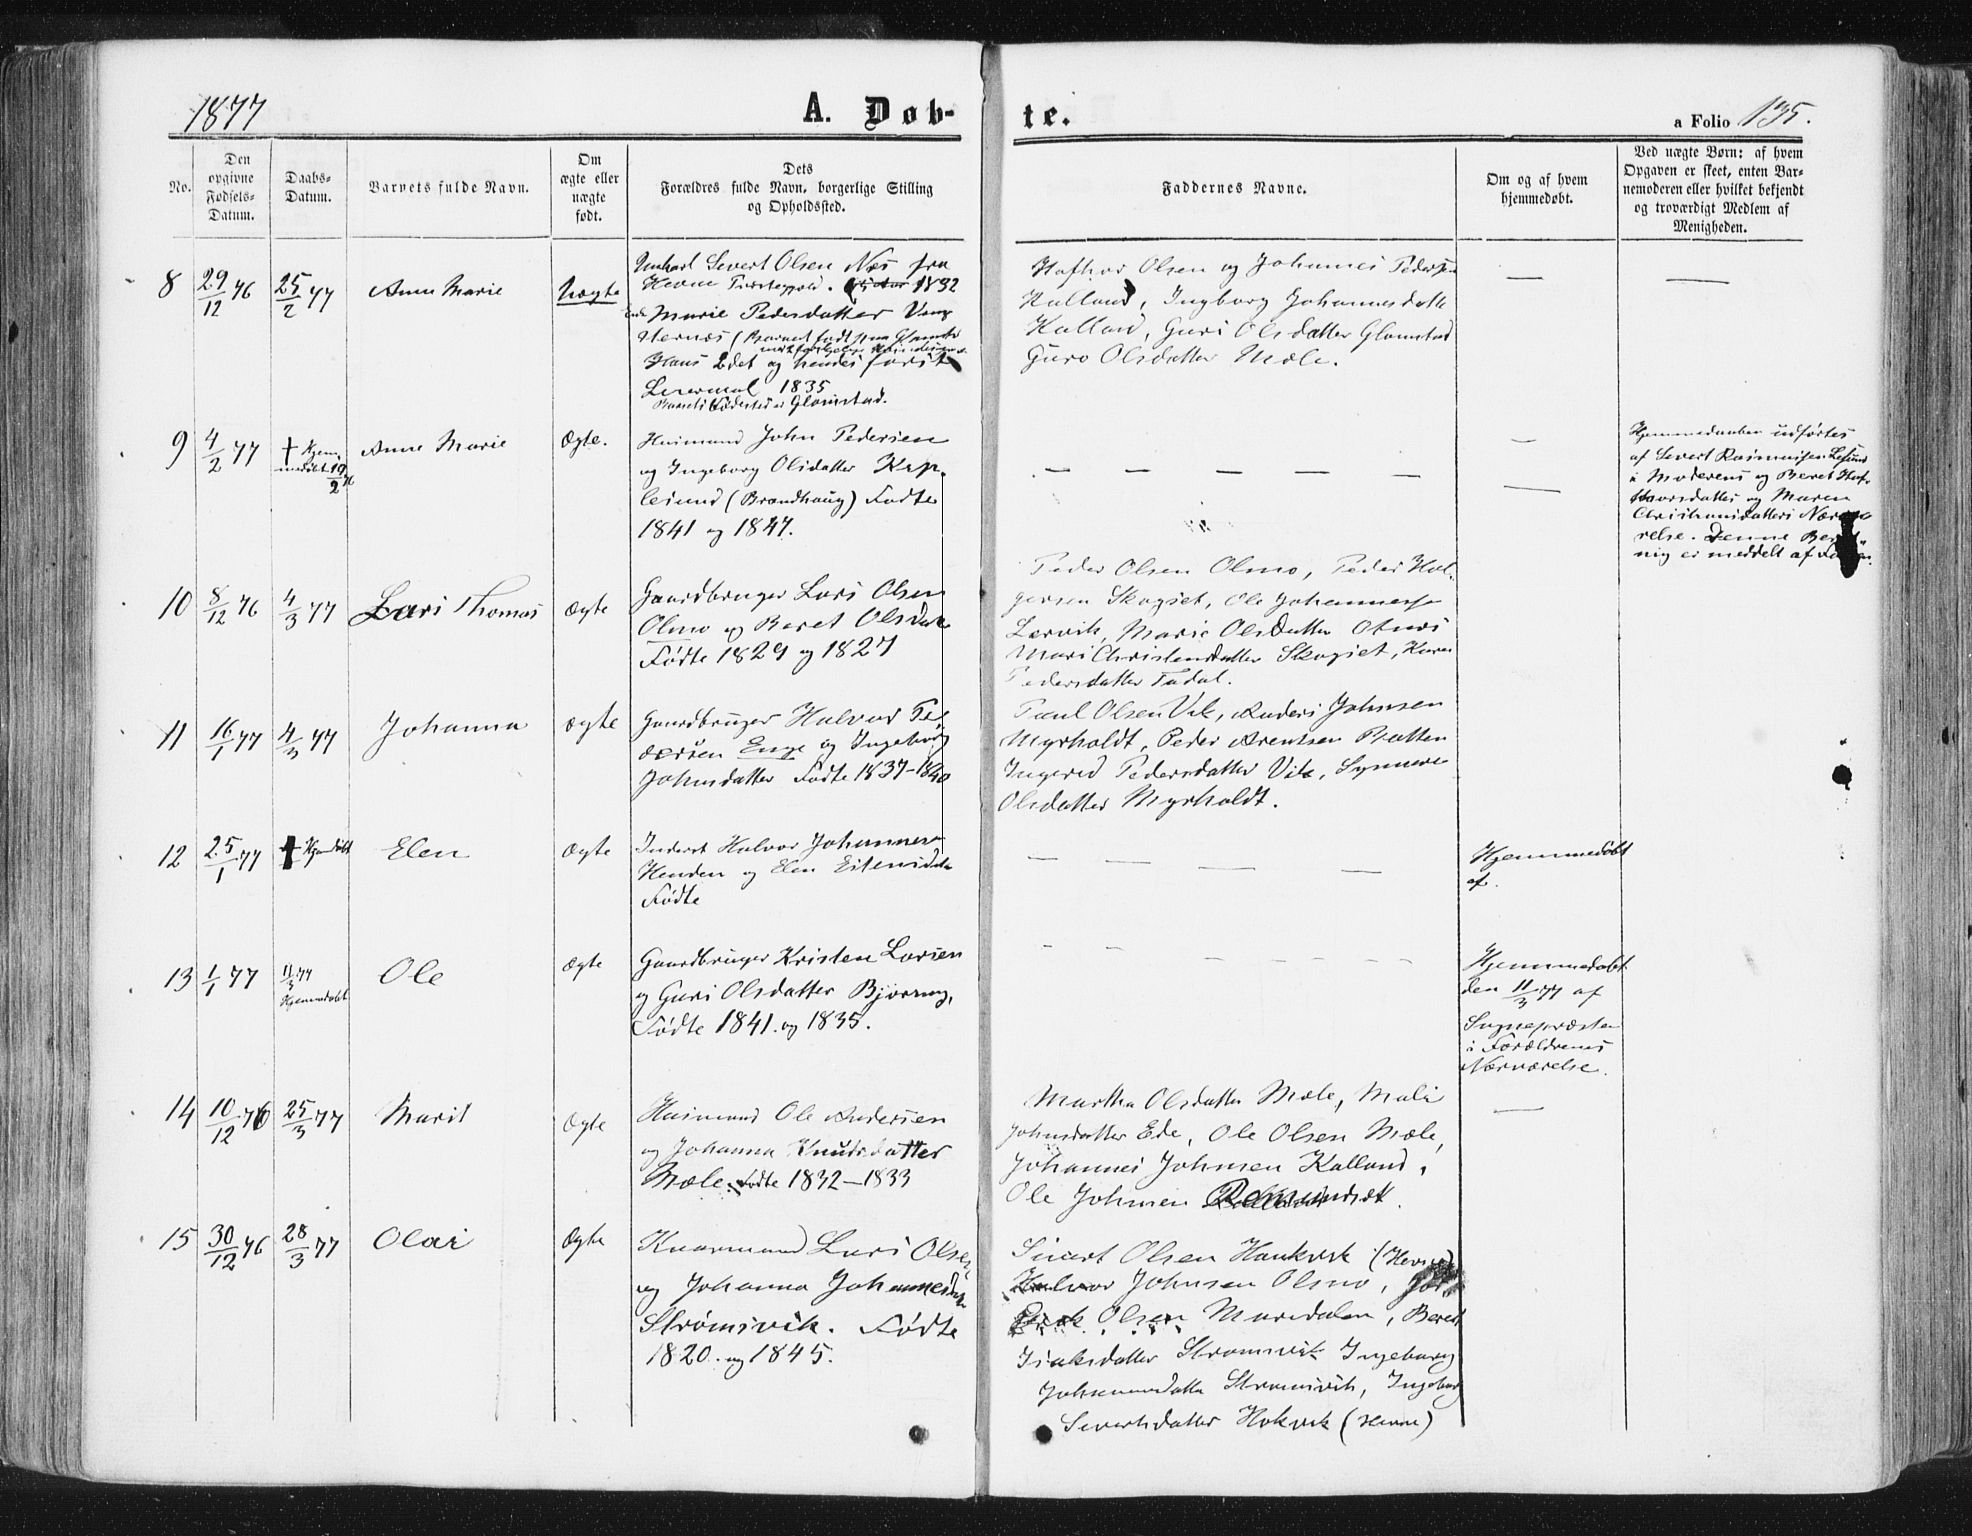 1877
A. Døb-
te.
a Folio 135.
No.
Den
opgivne
Fødsels-
Datum.
Daabs-
Datum.
Barnets fulde Navn.
Om
ægte eller
uægte
født.
Dets
Forældres fulde Navn, borgerlige Stilling
og Opholdssted.
Faddernes Navne.
Om og af hvem
hjemmedøbt.
Ved uægte Børn: af hvem
Opgaven er skeet, enten Bar-
nemoderen eller hvilket bekjendt
og troværdigt Medlem af
Menigheden.
8
29/12 76
25/2 77
Anne Marie
Uægte
Unkarl Severt Olsen Næs fra
Hevne 1832
Marie Pedersdatter
Hans 2det og hendes første
Leiermaal 1835
Barnets Fødested er Glamstad.
Olsen og Johannes Pedersen
Kalland, Ingborg Johannesdatt
Kalland, Guri Olsdatter Glamstad
Guro Olsdatter Mæle.
—
—
9
4/2 77
† Hjem
medøbt 19/2
Anne Marie
Ægte.
Huimand John Pedersen
og Ingeborg Olsdatter
(Brandhaug) Fødte
1841 og 1847.
— — — —
—
—
Hjemmedaaben udførtes
af Severt
i Moderens og Beret
og Maren
Denne
nig er meddelt af
10
8/12 76
4/3 77
Lars Thomas
Ægte
Gaardbruger Lars Olsen
Olmo og Beret Olsdat
Fødte 1829 og 1827
Peder Olsen Olmo, Peder Hal-
Skogset, Ole Johannesse
Lervik, Marie Olsdatter
Mari Christensdatter Skogset, Karen
Pedersdatter
11
16/1 77
4/3 77
Johanna
Ægte
Gaardbruger Halvor Pe
dersen Enge og Ingeborg
Johnsdatter Fødte 1837-1840
Paul Olsen Vik, Anders Johnsen
Myrholdt, Peder Arentsen Bratten
Ingerid Pedersdatter Vik,
Olsdatter Myrholdt.
12
25/1 77
† Hjemdøbt
Elen
Ægte
Inderst Halvor Johannes
Henden og Elen
Fødte
— — —
Hjemmedøbt
af.
13
1/1 77
11/3 77
Hjemmedøbt
Ole
Ægte
Gaardbruger Kristen Larsen
og Guri Olsdatter
Fødte 1841. og 1835.
Hjemmedøbt
den 11/3 77 af
Sognepræsten
i Forældrenes
Nærværelse.
14
10/12 76
25/3 77
Marit
Ægte
Huimand Ole Andersen
og Johanna Knutsdatter
Mæle. Fødte 1832—1833
Martha Olsdatter Mæle, Mali
Johnsdatter Ede, Ole Olsen Mæle,
Johannes Johnsen Kalland,
Ole Johnsen
—
15
30/12 76
28/3 77
Olai
Ægte
Lars Olsen
og Johanna Johannesd
Strømsvik. Fødte
1820. og 1845.
Sivert Olsen
Halvor Johnsen Olmo,
Olsen Mardalen, Beret
Isaksdatter Strømsvik Ingeborg
Johannesdatter Strømsvik, Ingeborg
Severtsdatter (Hevne)